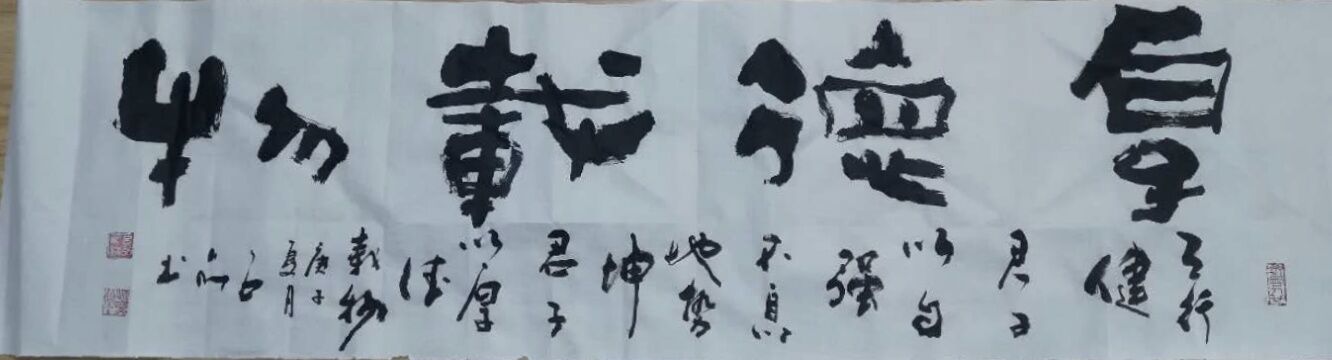 厚德载物
天行
健
君子
以自
强
不息
地势
坤
君子
以厚
德
载物
庚子
夏月
书